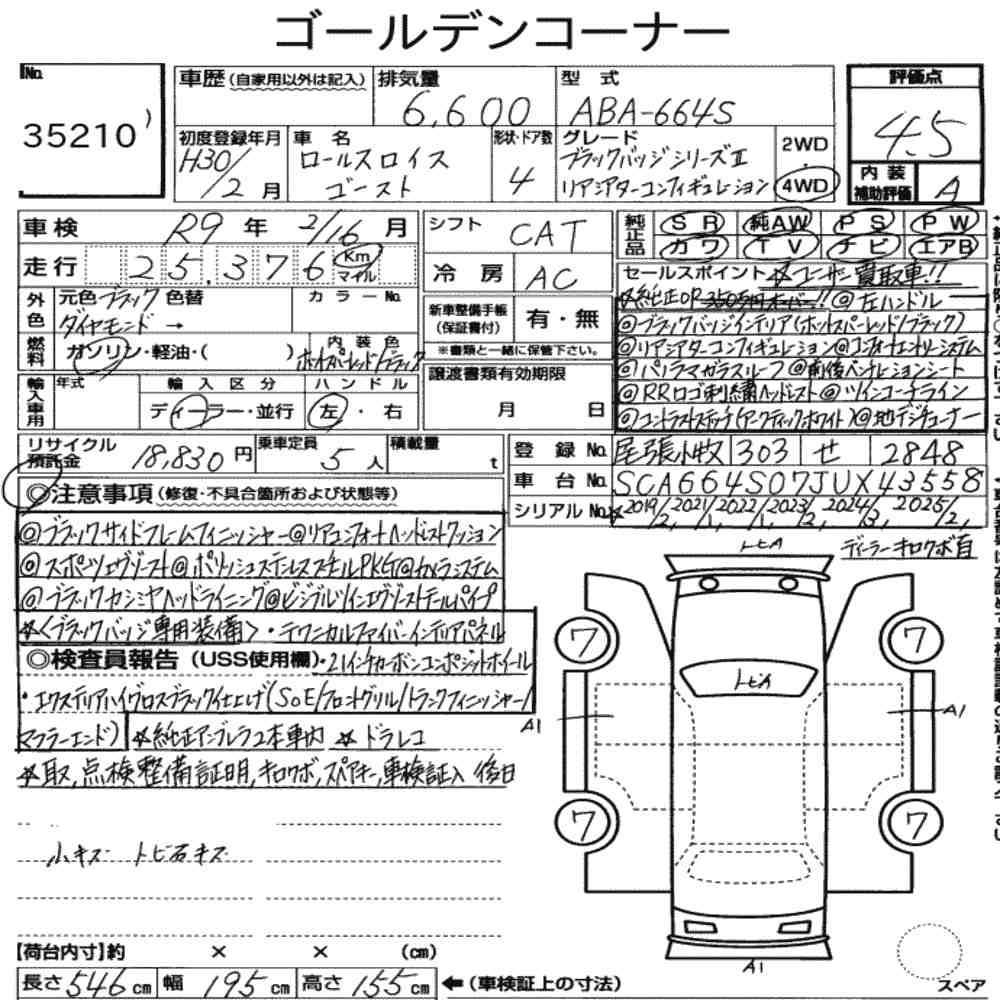 ゴールデンコーナー
No.
35210
車歴 (自家用以外は記入)
排気量
6,600
型 式
ABA-664S
評価点
4.5
内装補助評価 A
初度登録年月
H30/2月
車 名
ロールスロイス
ゴースト
形状・ドア数
4
グレード
ブラックバッジシリーズⅡ
リアシアターコンフィギュレーション
2WD
4WD
車検 R9年 2/16月
走行 25,376 Km マイル
シフト CAT
冷房 AC
純正品 SR 純AW PS PW
カワ TV ナビ エアB
外色
元色 ブラック 色替
ダイヤモンド →
カラーNo.
燃料
ガソリン・軽油・( )
内装色
ホットスパーレッド/ブラック
新車整備手帳
(保証書付)
有・無
※書類と一緒に保管下さい。
セールスポイント ☆ユーザー買取車!!
☆純正OP 350万円オーバー!! ◎左ハンドル
◎ブラックバッジインテリア(ホットスパーレッド/ブラック)
◎リアシアターコンフィギュレーション◎コンフォートエントリーシステム
◎パノラマガラスルーフ ◎前後ベンチレーションシート
◎RRロゴ刺繍ヘッドレスト◎ツインコーチライン
◎コントラストステッチ(アークティックホワイト)◎地デジチューナー
輸入車用
年式
輸入区分
ディーラー・並行
ハンドル
左・右
譲渡書類有効期限
月 日
リサイクル預託金 18,830円
乗車定員 5人
積載量 t
登録No. 尾張小牧 303 せ 2848
車台No. SCA664S07JUX43558
シリアルNo. ☆2019/2, 2021/1, 2022/1, 2023/2, 2024/3, 2025/2,
ディーラーキロクボ有
◎注意事項 (修復・不具合箇所および状態等)
◎ブラックサイドフレームフィニッシャー◎リアコンフォートヘッドレストクッション
◎スポーツエグゾースト◎ポリッシュステンレススチールPKG◎カメラシステム
◎ブラックカシミヤヘッドライニング◎ビジブルツインエグゾーストテールパイプ
☆〈ブラックバッジ専用装備〉・テクニカルファイバーインテリアパネル
◎検査員報告 (USS使用欄)・21インチカーボンコンポジットホイール
・エクステリアハイグロスブラック仕上げ(SoE/フロントグリル/トランクフィニッシャー/
マフラーエンド) ☆純正アンブレラ2本車内 ☆ドラレコ
☆取,点検整備証明,キロクボ,スペアキー,車検証入 後日
小キズ トビ石キズ
トビA
トビA
7
7
7
7
A1
A1
A1
スペア
【荷台内寸】約 × × (cm)
長さ 546 cm 幅 195 cm 高さ 155 cm ←(車検証上の寸法)